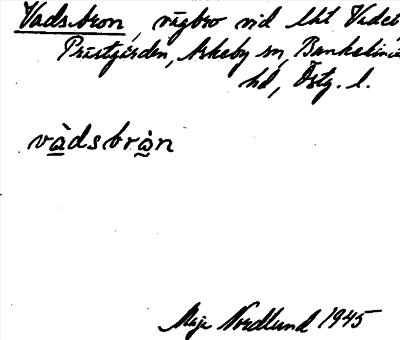 Vadsbron, vägbro vid lht Vadet
Prästgården, Askeby sn, Bankekinds
hd, Östg. l.
vàdsbròn
Maja Nordlund 1945